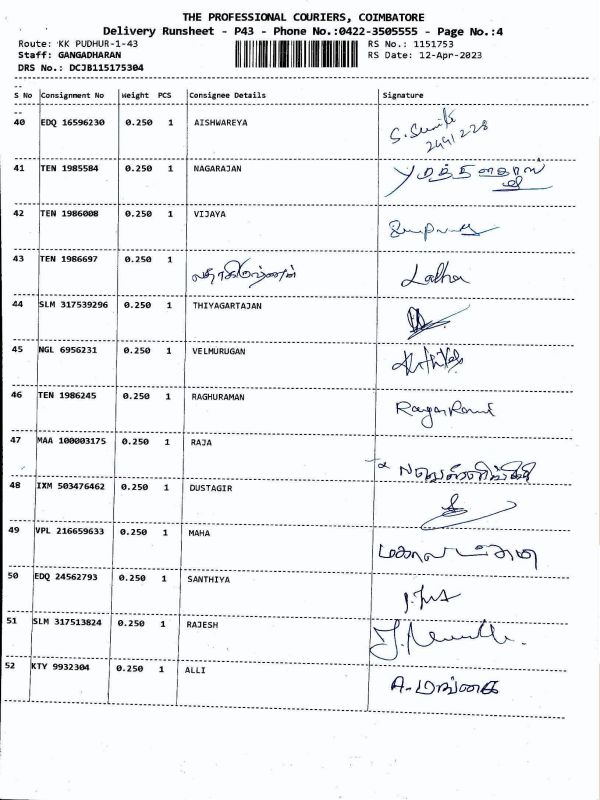 THE PROFESSIONAL COURIERS, COIMBATORE
Delivery Runsheet - P43 - Phone No.:0422-3505555 - Page No.:4
Route: KK PUDHUR-1-43 RS No.: 1151753
Staff: GANGADHARAN RS Date: 12-Apr-2023
DRS No.: DCJB115175304
S No Consignment No Weight PCS Consignee Details Signature
40 EDQ 16596230 0.250 1 AISHWAREYA
41 TEN 1985584 0.250 1 NAGARAJAN
42 TEN 1986008 0.250 1 VIJAYA
43 TEN 1986697 0.250 1 Latha
44 SLM 317539296 0.250 1 THIYAGARTAJAN
45 NGL 6956231 0.250 1 VELMURUGAN
46 TEN 1986245 0.250 1 RAGHURAMAN
47 MAA 100003175 0.250 1 RAJA
48 IXM 503476462 0.250 1 DUSTAGIR
49 VPL 216659633 0.250 1 MAHA
50 EDQ 24562793 0.250 1 SANTHIYA
51 SLM 317513824 0.250 1 RAJESH
52 KTY 9932304 0.250 1 ALLI A. மங்கை